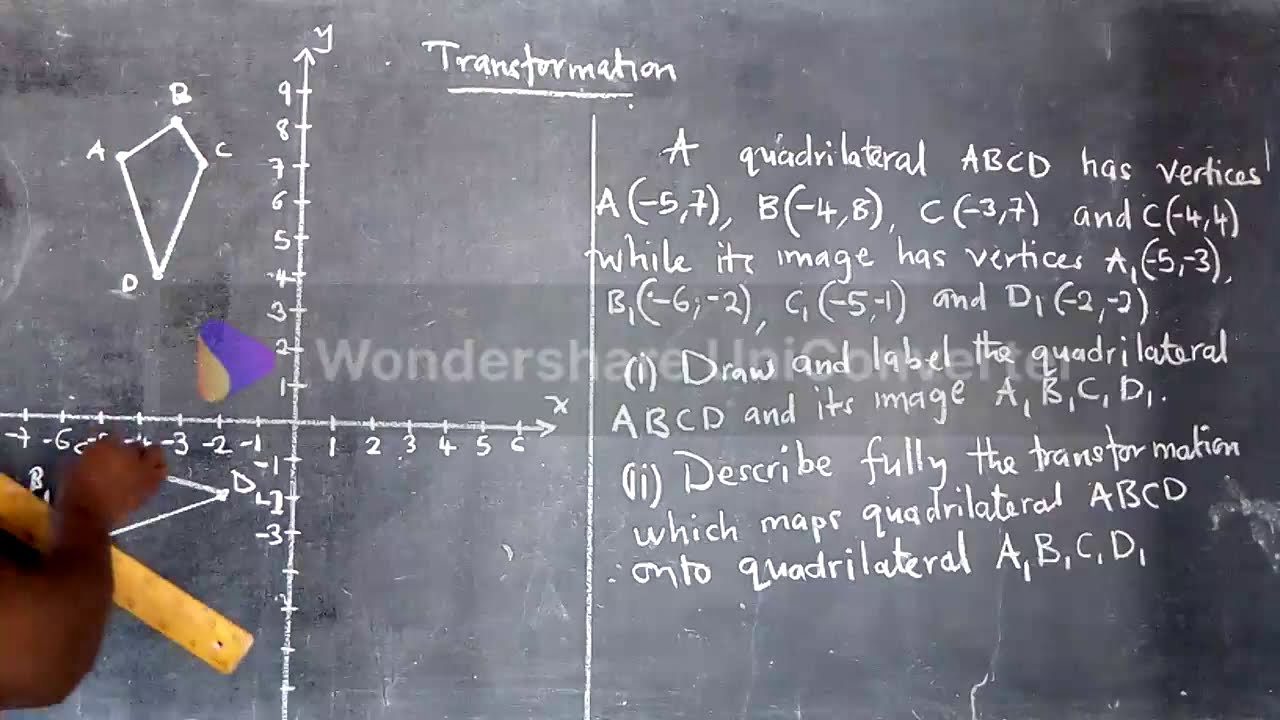 Transformation
y
9
8
7
6
5
4
3
2
1
A
B
C
D
x
-7 -6 -5 -4 -3 -2 -1 1 2 3 4 5 6
-1
-2
-3
B₁
D₁
A quadrilateral ABCD has vertices
A(-5,7), B(-4,8), C(-3,7) and C(-4,4)
while its image has vertices A₁(-5,-3),
B₁(-6,-2), C₁(-5,-1) and D₁(-2,-2)
(i) Draw and label the quadrilateral
ABCD and its image A₁B₁C₁D₁.
(ii) Describe fully the transformation
which maps quadrilateral ABCD
onto quadrilateral A₁B₁C₁D₁
Wondershare UniConverter